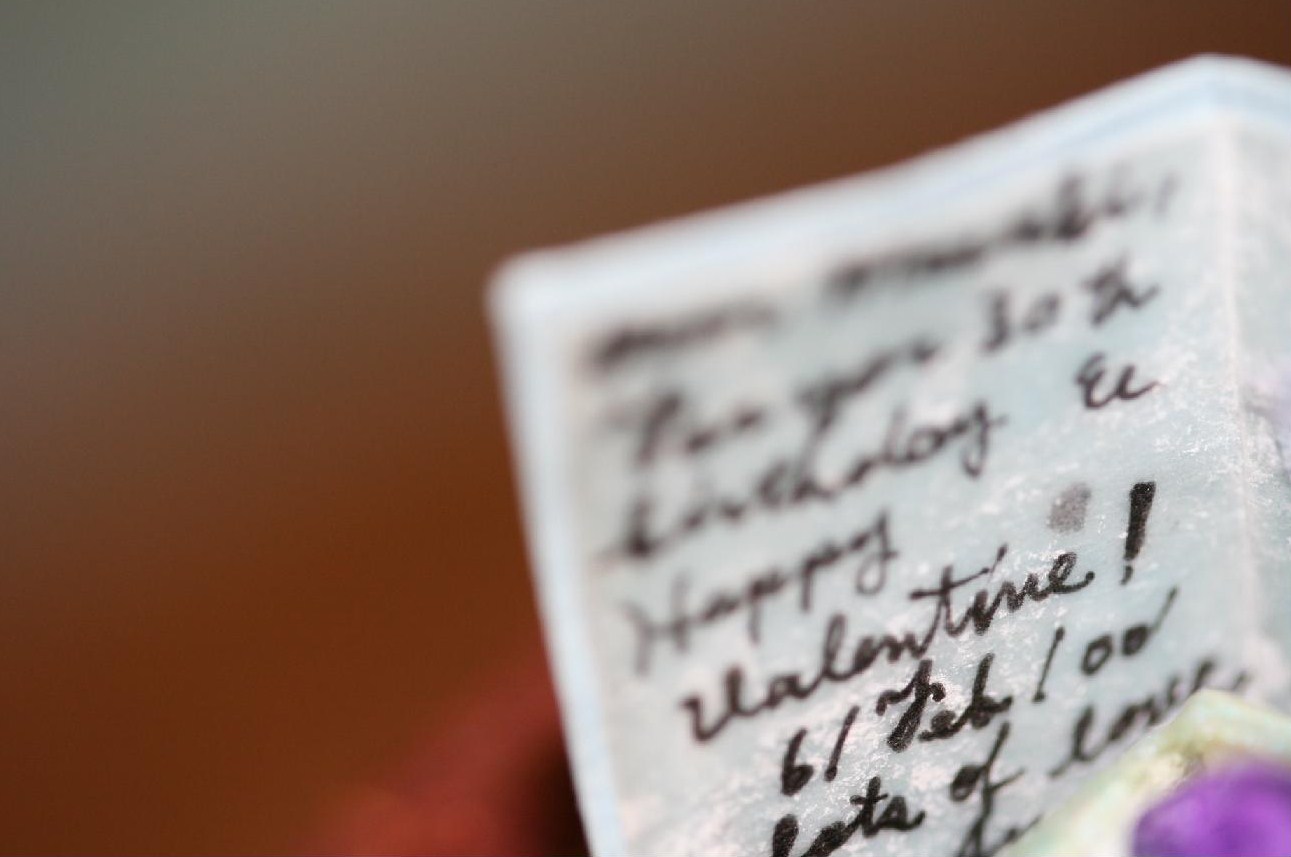 For your 30th
birthday &
Happy
Valentine!
6/Feb/00
Lots of love,